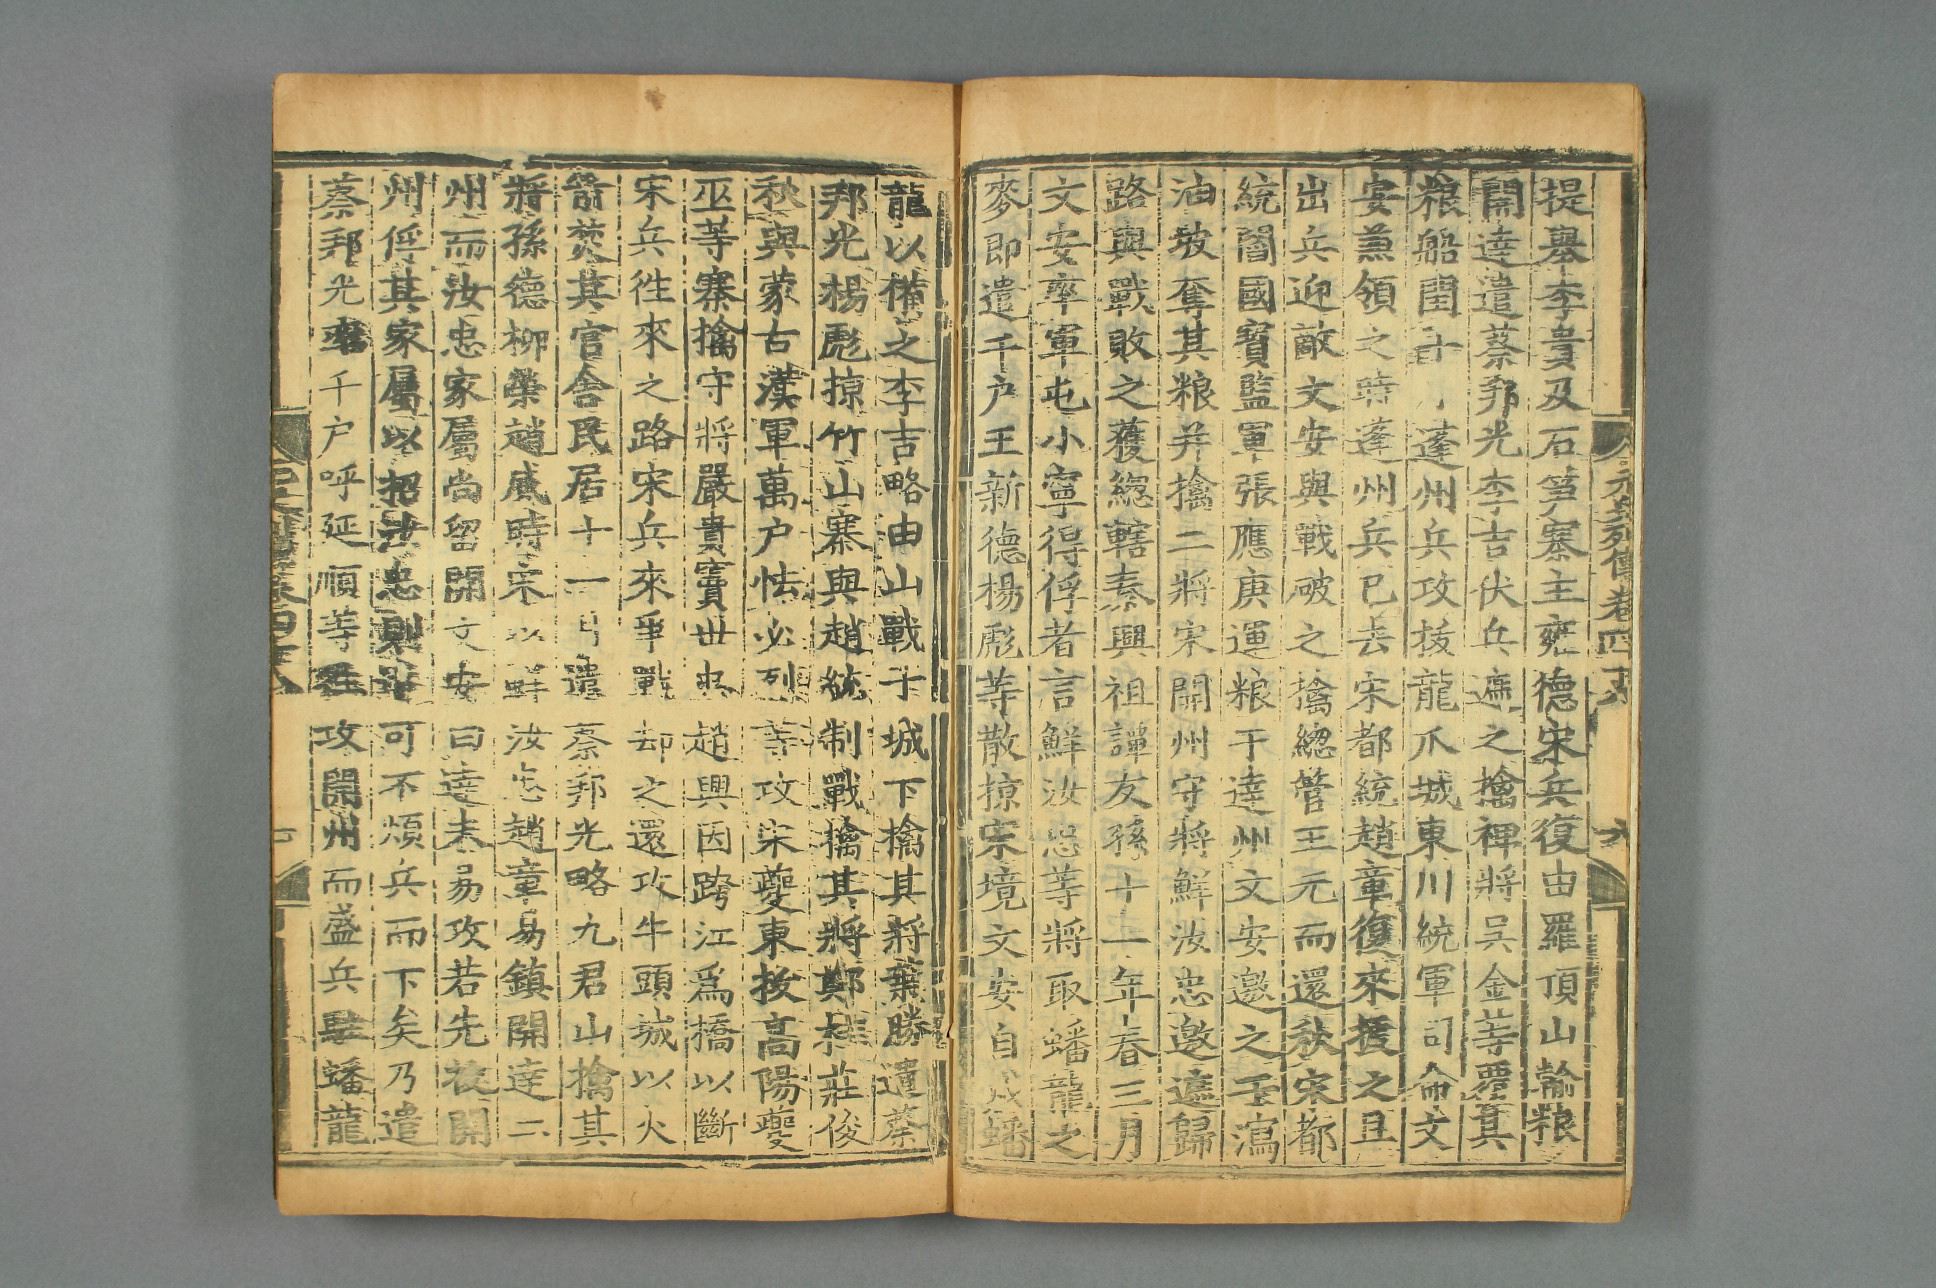 提舉李貴及石筍寨主雍德宋兵復由羅頂山輸粮
開達遣蔡邦光李吉伏兵遮之擒裨將吳金等覆其
粮船蓬州兵攻拔龍爪城東川統軍司命文
安兼領之時蓬州兵已去宋都統趙章復來據之且
出兵迎敵文安與戰破之擒緫管王元而還秋宋都
統閻國寳監軍張應庚運粮于達州文安邀之于瀉
油坡奪其粮并擒二將宋開州守將鮮汝忠邀遮歸
路與戰敗之獲緫轄秦興祖譚友孫十一年春三月
文安率軍屯小寧得俘者言鮮汝忠等將取蟠龍之
麥即遣千户王新德楊彪等散掠宋境文安自蟠
龍以備之李吉略由山戰于城下擒其將葉勝遣蔡
邦光楊彪掠竹山寨與趙統制戰擒其將鄭桂莊俊
秋與蒙古漢軍萬户怯必列等攻宋夔東拔高陽夔
巫等寨擒守將嚴貴竇世忠趙興因跨江爲橋以斷
宋兵徃來之路宋兵來爭戰却之還攻牛頭城以火
箭焚其官舍民居十一月遣蔡邦光略九君山擒其
將孫德柳榮趙威時宋以鮮汝忠趙章易鎮開達二
州而汝忠家屬尚留開文安曰達未易攻若先拔開
州俘其家屬以招汝忠則可不煩兵而下矣乃遣
蔡邦光率千户呼延順等徃攻開州而盛兵駐蟠龍
元史列傳卷四十八